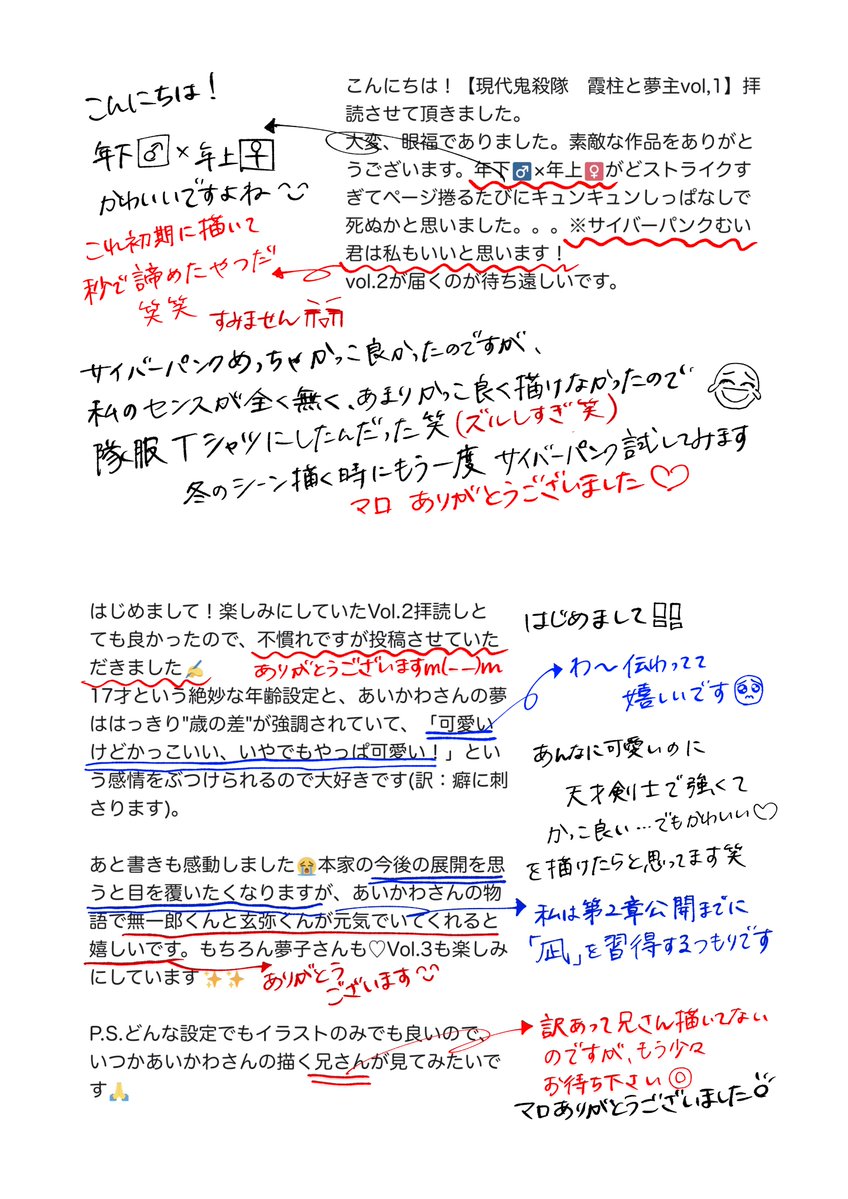 こんにちは！【現代鬼殺隊　霞柱と夢主vol,1】拝
読させて頂きました。
大変、眼福でありました。素敵な作品をありがと
うございます。年下♂️×年上♀️がどストライクす
ぎてページ捲るたびにキュンキュンしっぱなしで
死ぬかと思いました。。。※サイバーパンクむい
君は私もいいと思います！
vol.2が届くのが待ち遠しいです。
こんにちは！
年下♂×年上♀
かわいいですよね
これ初期に描いて
秒で諦めたやつだ
笑笑
すみません
サイバーパンクめっちゃかっこ良かったのですが、
私のセンスが全く無く、あまりかっこ良く描けなかったので
隊服Tシャツにしたんだった笑(ズルしすぎ笑)
冬のシーン描く時にもう一度 サイバーパンク試してみます
マロ ありがとうございました♡
はじめまして！楽しみにしていたVol.2拝読しと
ても良かったので、不慣れですが投稿させていた
だきました✍️
ありがとうございますm(--)m
17才という絶妙な年齢設定と、あいかわさんの夢
ははっきり"歳の差"が強調されていて、「可愛い
けどかっこいい、いやでもやっぱ可愛い！」とい
う感情をぶつけられるので大好きです(訳：癖に刺
さります)。
あと書きも感動しました😭本家の今後の展開を思
うと目を覆いたくなりますが、あいかわさんの物
語で無一郎くんと玄弥くんが元気でいてくれると
嬉しいです。もちろん夢子さんも♡Vol.3も楽しみ
にしています✨✨
ありがとう
ございます
P.S.どんな設定でもイラストのみでも良いので、
いつかあいかわさんの描く兄さんが見てみたいで
す🙏
はじめまして
わ〜伝わってて
嬉しいです🥺
あんなに可愛いのに
天才剣士で強くて
かっこ良い…でもかわいい♡
を描けたらと思ってます笑
私は第2章公開までに
「凪」を習得するつもりです
訳あって兄さん描いてない
のですが、もう少々
お待ち下さい◎
マロありがとうございました